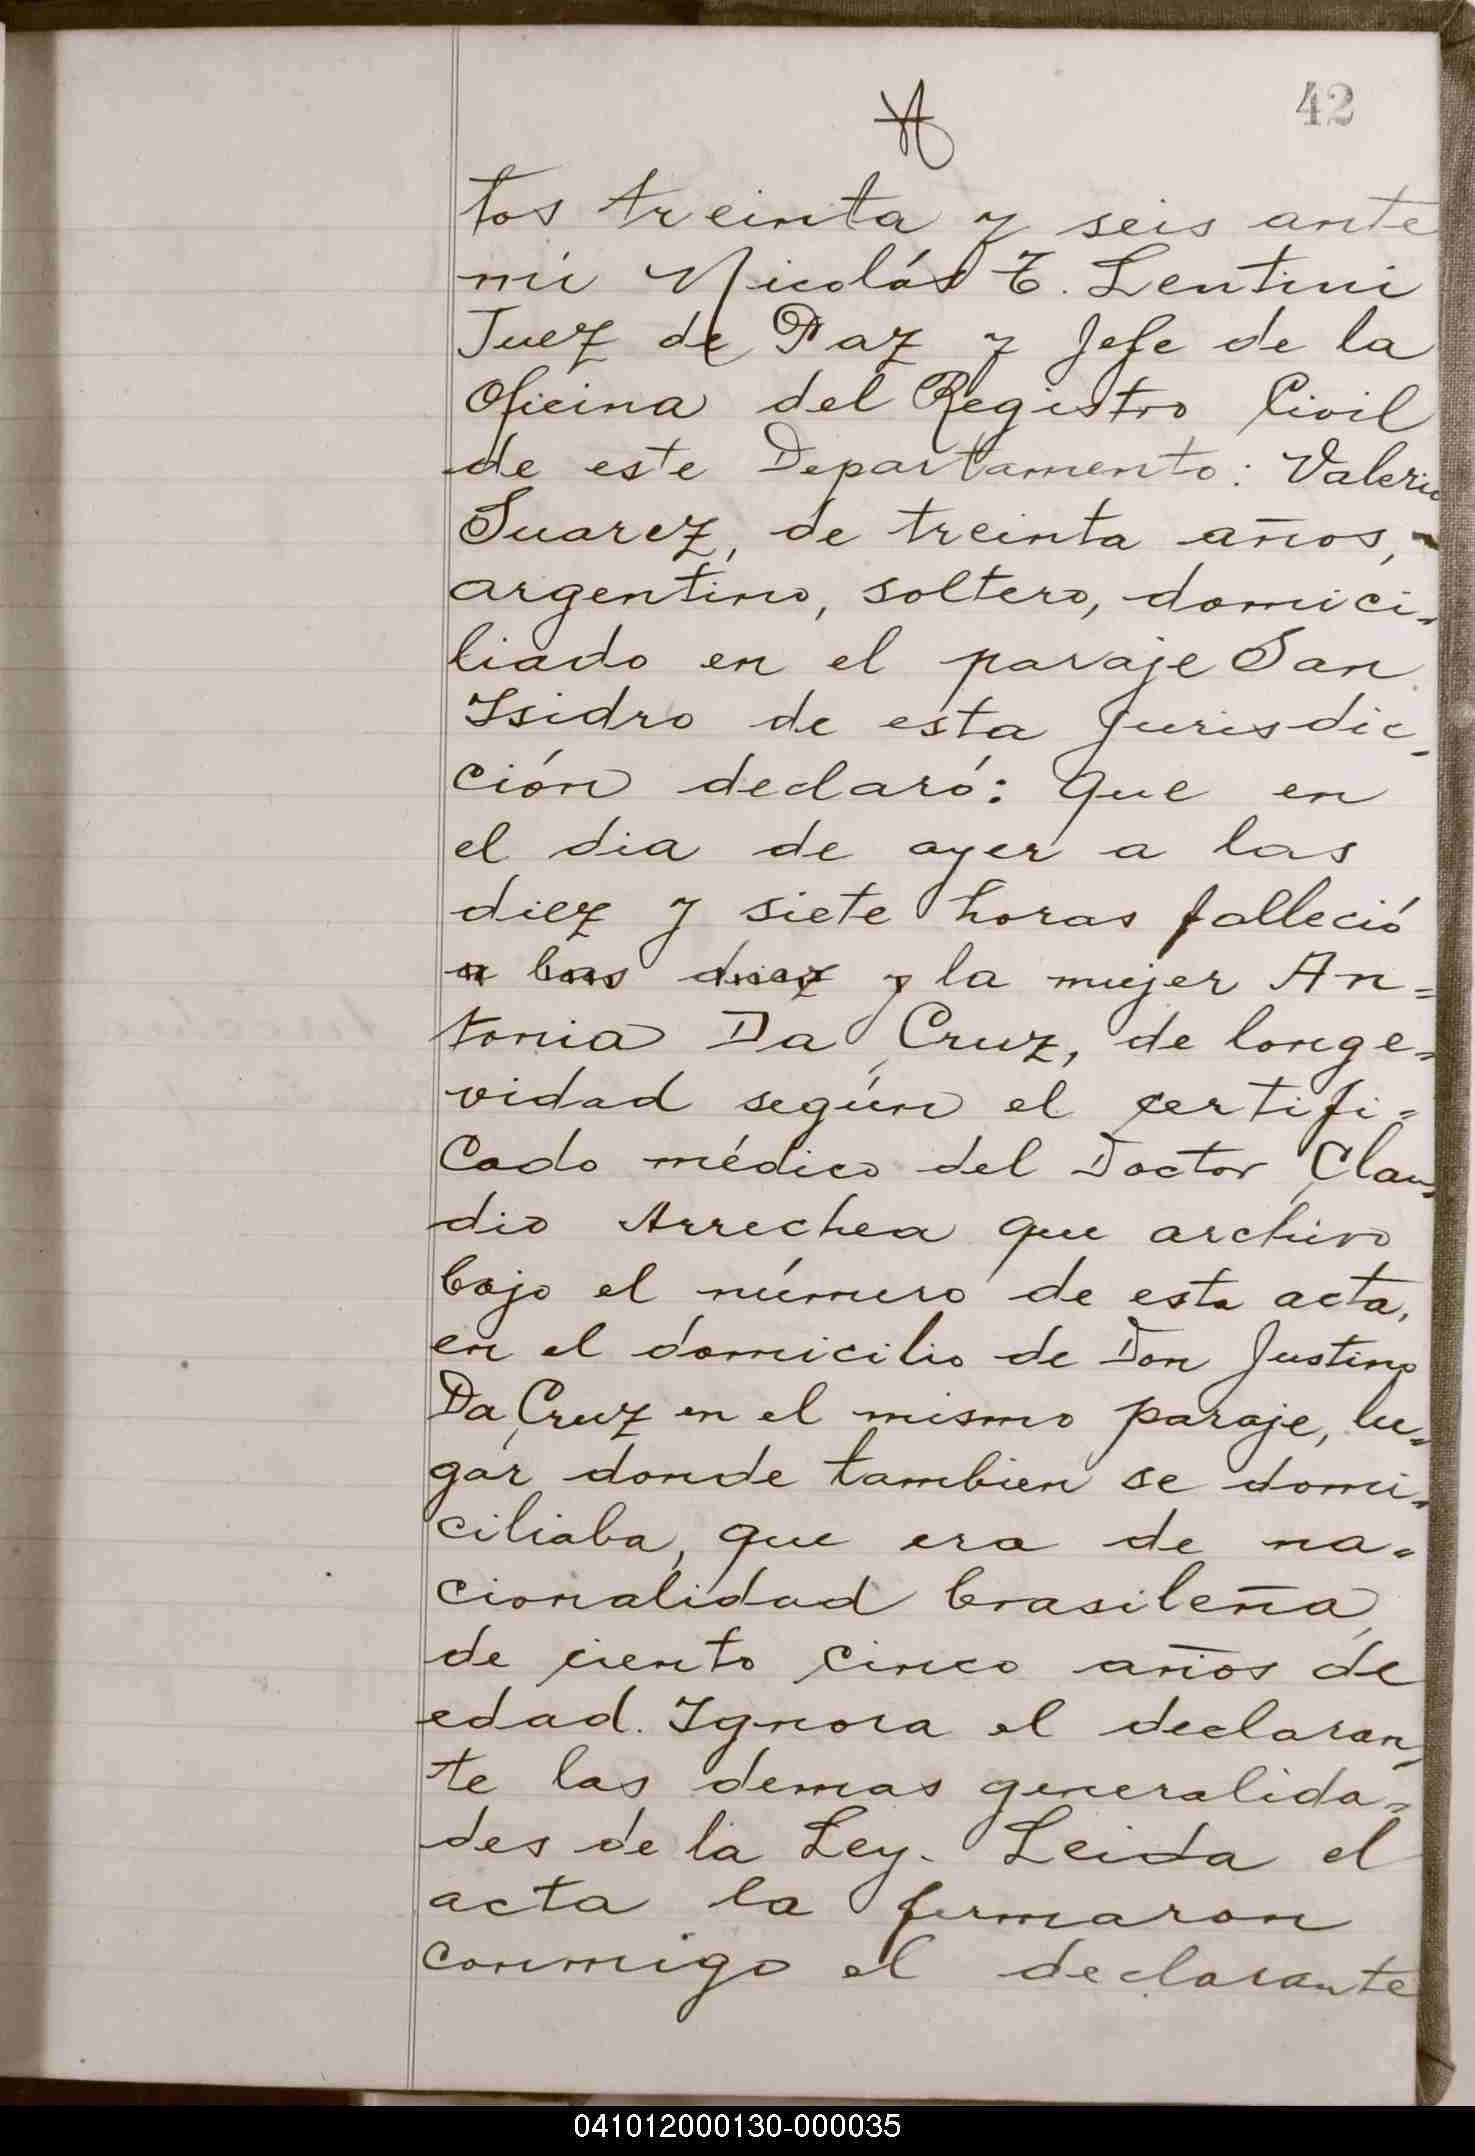 42
tos treinta y seis ante
mi Nicolás T. Lentini
Juez de Paz y Jefe de la
Oficina del Registro Civil
de este Departamento: Valerio
Suarez, de treinta años,-
argentino, soltero, domici=
liado en el paraje San
Isidro de esta jurisdic=
ción declaró: Que en
el dia de ayer a las
diez y siete horas falleció
a las diez y la mujer An=
tonia Da Cruz, de longe=
vidad según el certifi=
cado médico del Doctor Clau=
dio Arrechea que archivo
bajo el número de esta acta,
en el domicilio de Don Justino
Da Cruz en el mismo paraje, lu=
gar donde tambien se domi=
ciliaba, que era de na=
cionalidad brasileña,
de ciento cinco años de
edad. Ignora el declaran=
te las demas generalida=
des de la Ley. Leida el
acta la firmaron
conmigo el declarante
041012000130-000035